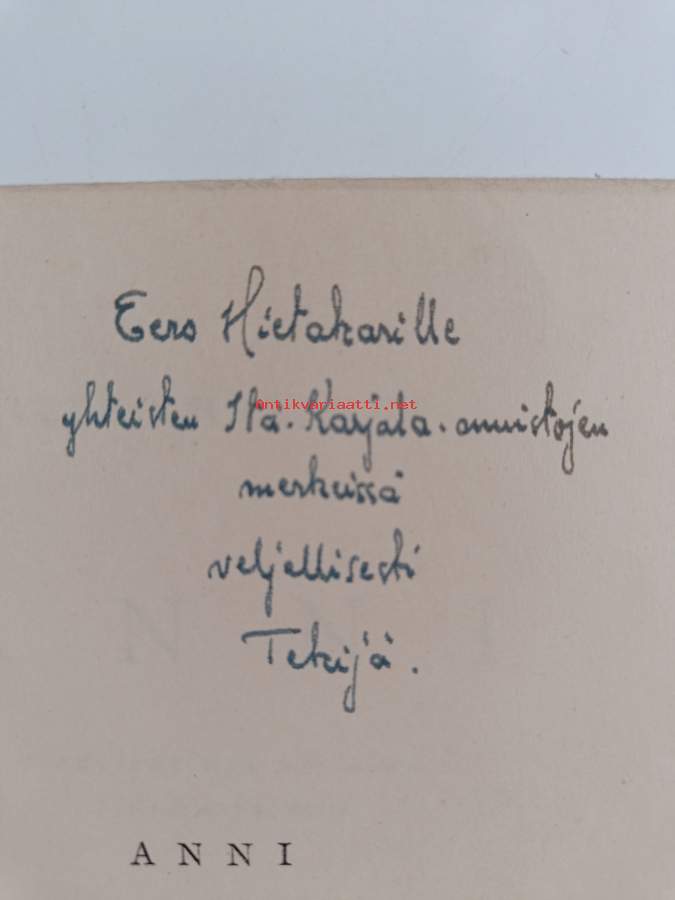 Eero Hietakarille
Antikvariaatti.net
yhteisten Itä-Karjala-muistojen
merkeissä
veljellisesti
Tekijä.
ANNI